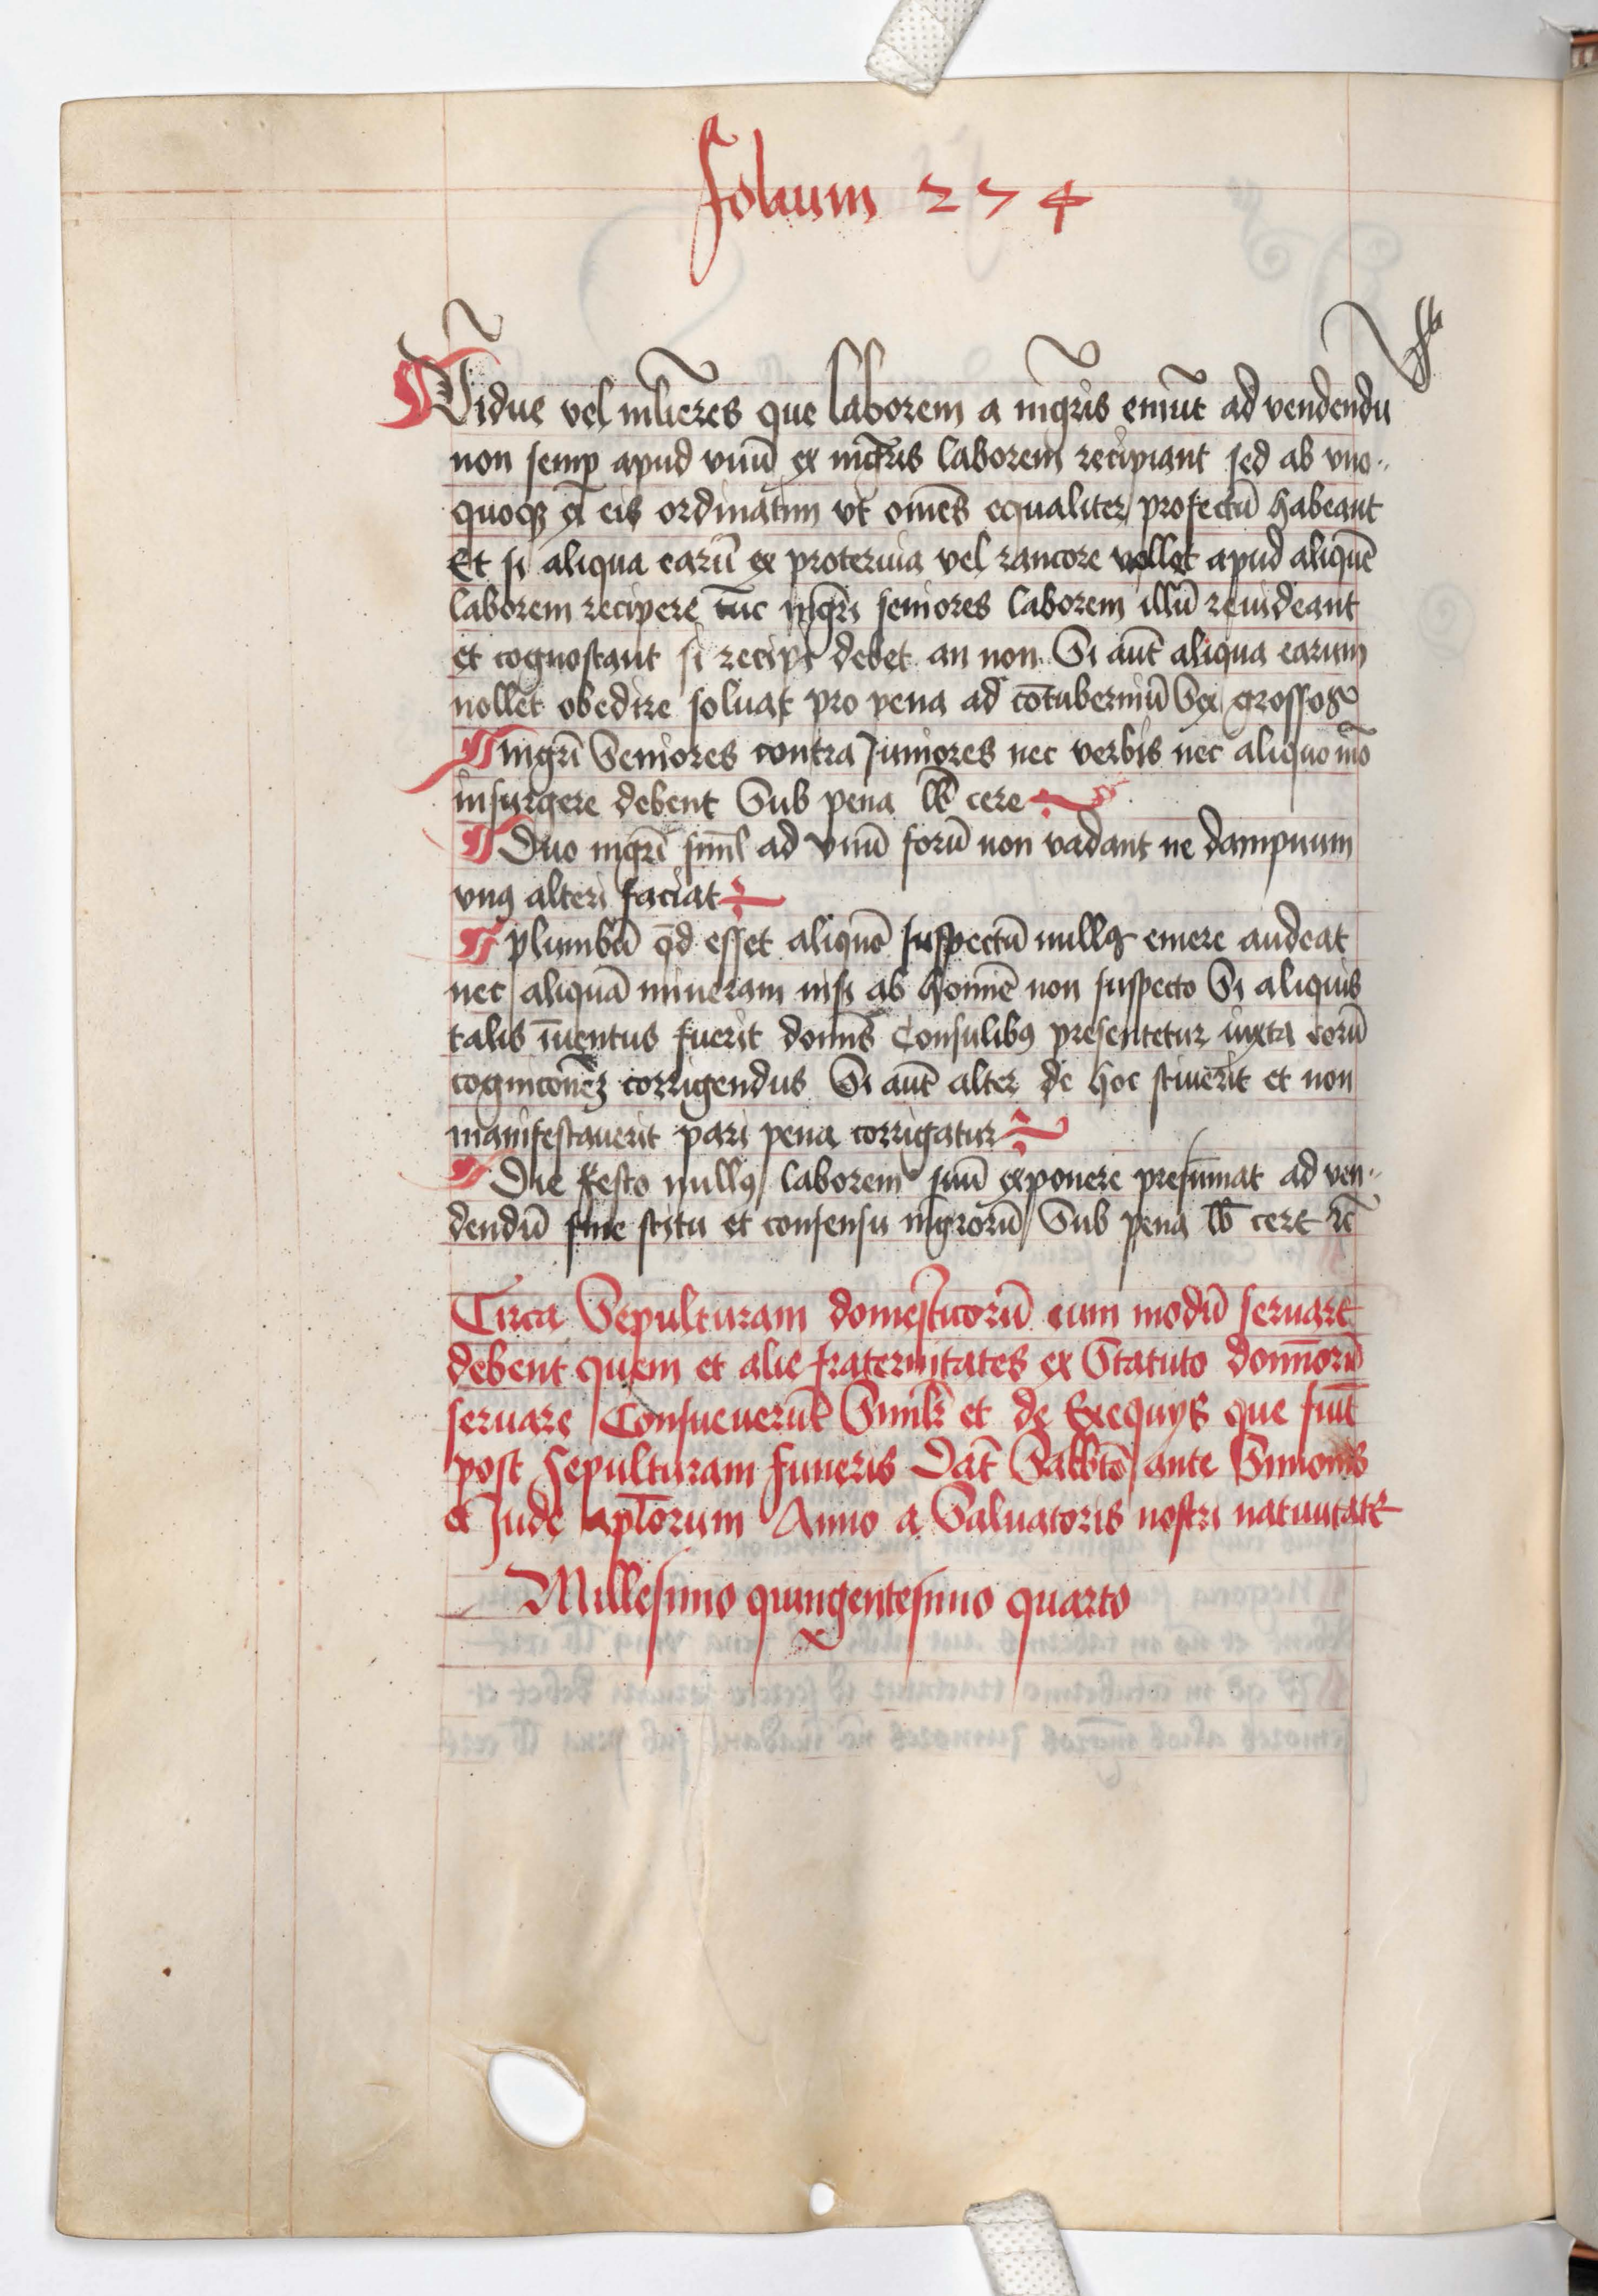 folium 274
Vidue vel mlieres que laborem a mgris emut ad vendendu
non semp apud vnu ex mgris laborem recipiant sed ab vno..
quoqȝ ex eis ordinatim vt omes equaliter profectu habeant
Et si aliqua earu ex proteruia vel rancore vellet apud aliquem
laborem recipere tuc mgri seniores laborem illu reuideant
et cognoscant si recipi debet an non Si aut aliqua earum
nollet obedire soluat pro pena ad cotuberniu Sex grossos
mgri Seniores contra Juniores nec verbis nec aliquo mo
insurgere debent Sub pena lb cere
Duo mgri siml ad vnu foru non vadant ne dampnum
vnꝰ alteri faciat
plumbu qd esset alique suspectu nullꝰ emere audeat
nec aliqua mineram nisi ab homie non suspecto Si aliquis
talis iuentus fuerit domis Consulibꝰ presentetur iuxta eoru
cognicoeȝ corrigendus Si aut alter de hoc sciuerit et non
manifestauerit pari pena corrigatur
Die festo nullꝰ laborem suu exponere presumat ad ven..
dendu sine scitu et consensu mgroru Sub pena lb cere
Circa Sepulturam domesticoru eum modu seruare
debent quem et alie fraternitates ex Statuto domoru
seruare Consueuerut Simlr et de Exequys que fiut
post sepulturam funeris Dat Sabbto ante Simonis
et Jude aplorum Anno a Saluatoris nostri natiuitate
Millesimo quingentesimo quarto